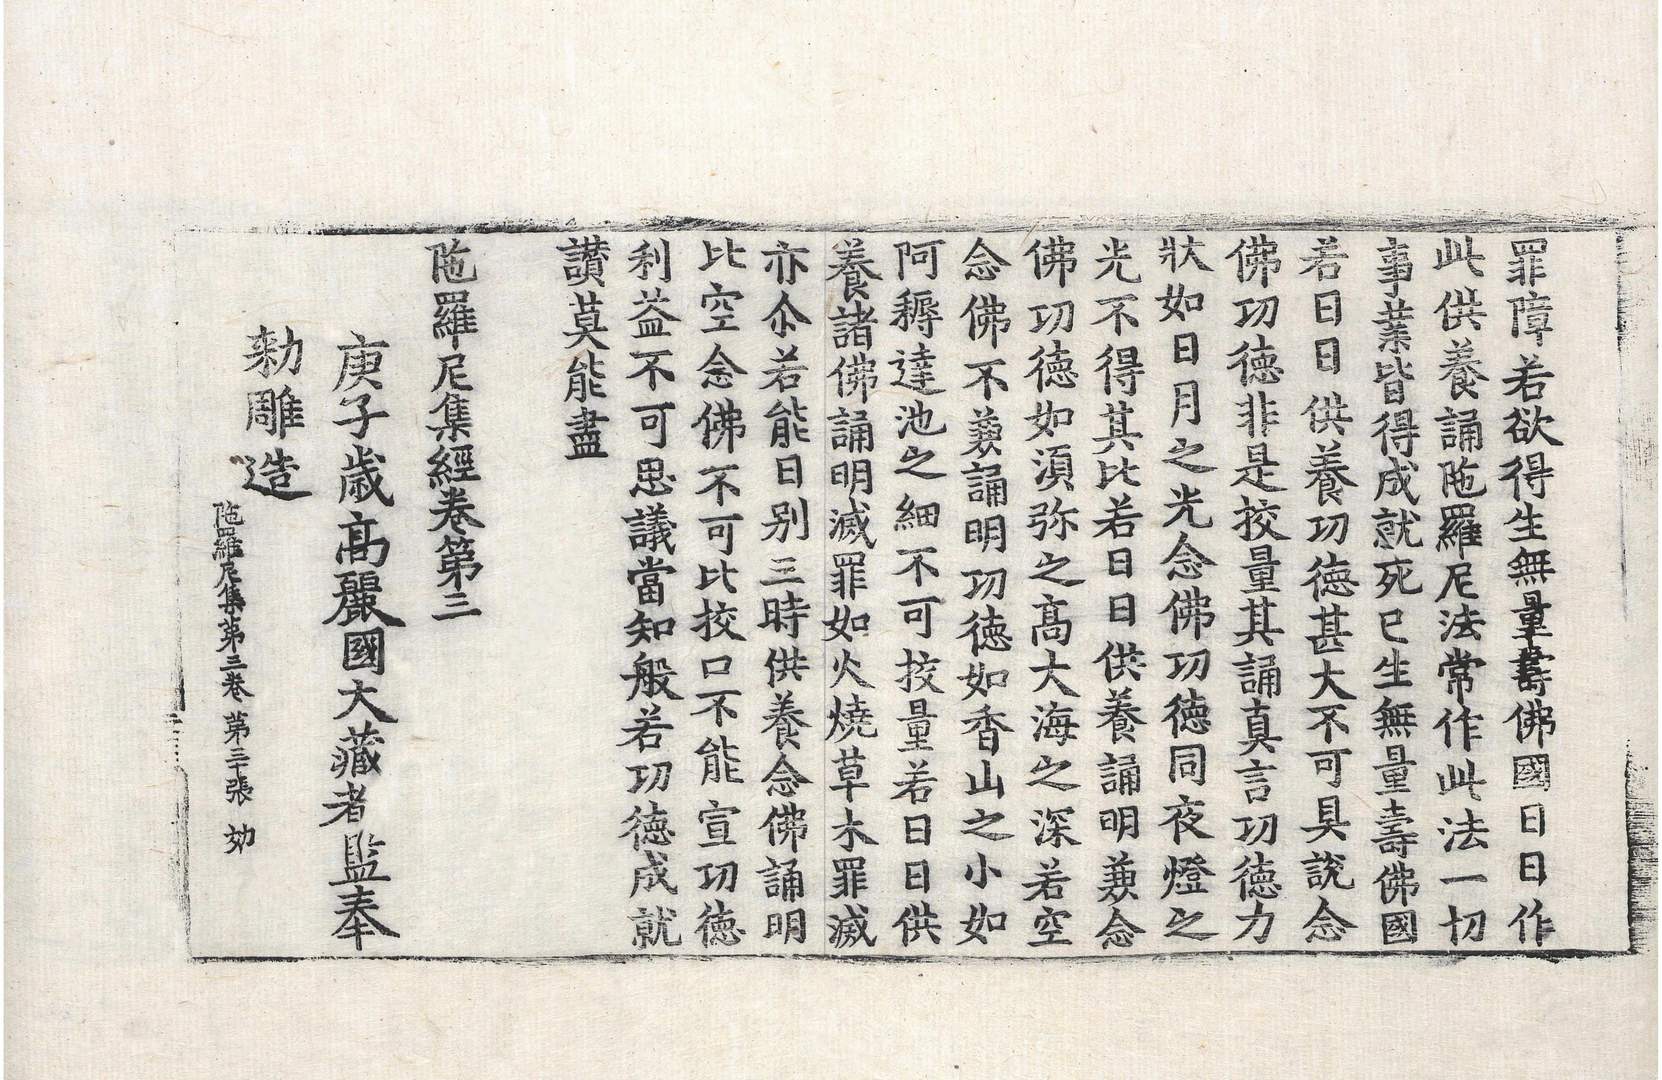 罪障若欲得生無量壽佛國日日作
此供養誦陁羅尼法常作此法一切
事業皆得成就死已生無量壽佛國
若日日供養功德甚大不可具說念
佛功德非是挍量其誦真言功德力
狀如日月之光念佛功德同夜燈之
光不得其比若日日供養誦明兼念
佛功德如湏弥之髙大海之深若空
念佛不兼誦明功德如香山之小如
阿耨達池之細不可挍量若日日供
養諸佛誦明滅罪如火燒草木罪滅
亦尒若能日別三時供養念佛誦明
比空念佛不可比挍口不能宣功德
利益不可思議當知般若功德成就
讃莫能盡
陁羅尼集經卷第三
庚子歲髙麗國大藏者監奉
勑雕造
陁羅尼集第三卷 第三張